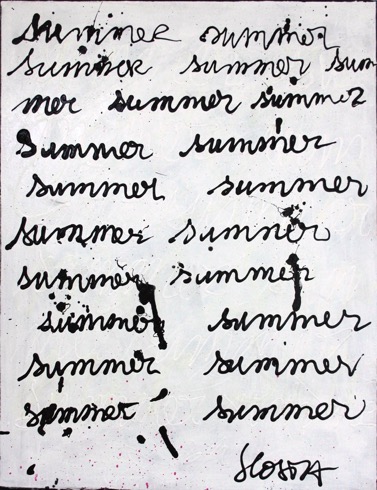 summer summer
summer summer sum
mer summer summer
summer summer
summer summer
summer summer
summer summer
summer summer
summer summer
summer summer